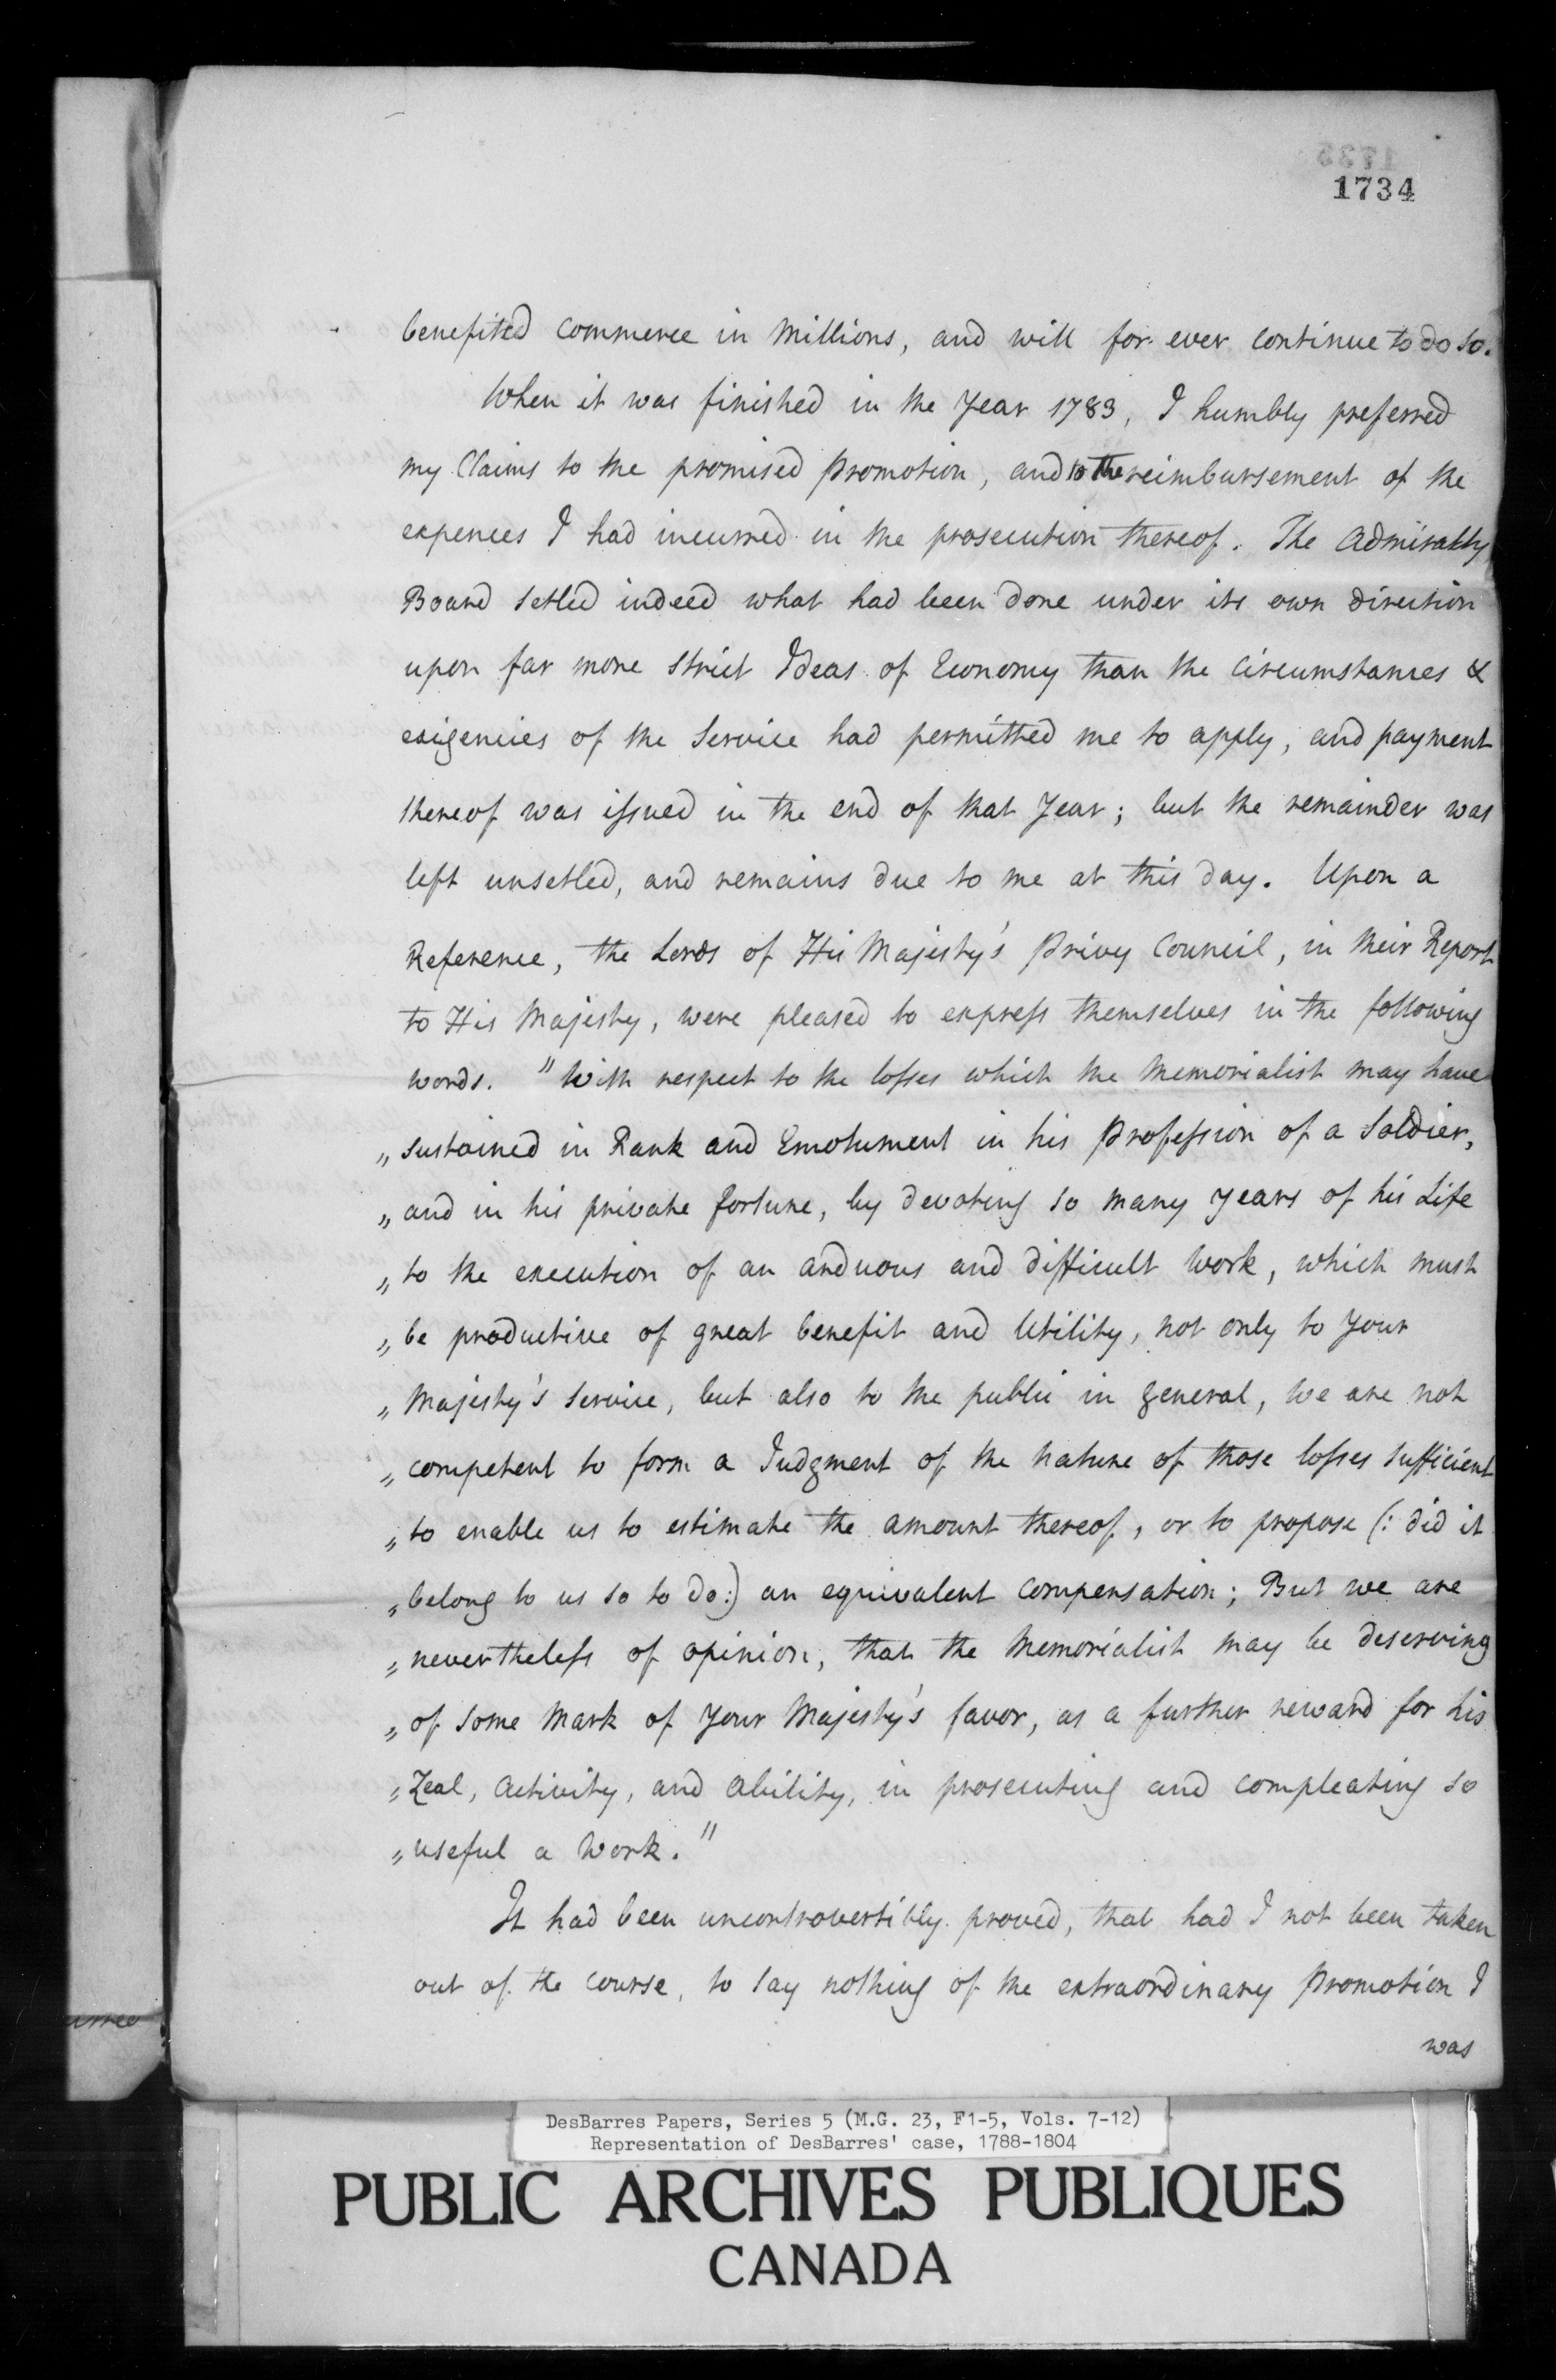 1735
1734
benefited Commerce in Millions, and will for ever continue to do so.
When it was finished in the Year 1783, I humbly preferred
my Claims to the promised Promotion, and to the reimbursement of the
expences I had incurred in the prosecution thereof. The Admiralty
Board setled indeed what had been done under its own direction
upon far more strict Ideas of Economy than the Circumstances &
exigencies of the Service had permitted me to apply, and payment
thereof was issued in the end of that Year; but the remainder was
left unsetled, and remains due to me at this day. Upon a
Reference, the Lords of His Majesty's Privy Council, in their Report
to His Majesty, were pleased to express themselves in the following
words. "With respect to the losses which the Memorialist may have
„ sustained in Rank and Emolument in his Profession of a Soldier,
„ and in his private fortune, by devoting so many years of his Life
„ to the execution of an arduous and difficult Work, which must
„ be productive of great benefit and Utility, not only to Your
„ Majesty's Service, but also to the public in general, we are not
„ competent to form a Judgment of the nature of those losses sufficient
„ to enable us to estimate the amount thereof, or to propose (: did it
„ belong to us so to do :) an equivalent Compensation; But we are
„ nevertheless of opinion, that the Memorialist may be deserving
„ of some Mark of Your Majesty's favor, as a further reward for his
„ Zeal, Activity, and Ability, in prosecuting and compleating so
„ useful a Work."
It had been uncontrovertibly proved, that had I not been taken
out of the course, to say nothing of the extraordinary Promotion I
was
DesBarres Papers, Series 5 (M.G. 23, F1-5, Vols. 7-12)
Representation of DesBarres' case, 1788-1804
PUBLIC ARCHIVES PUBLIQUES
CANADA